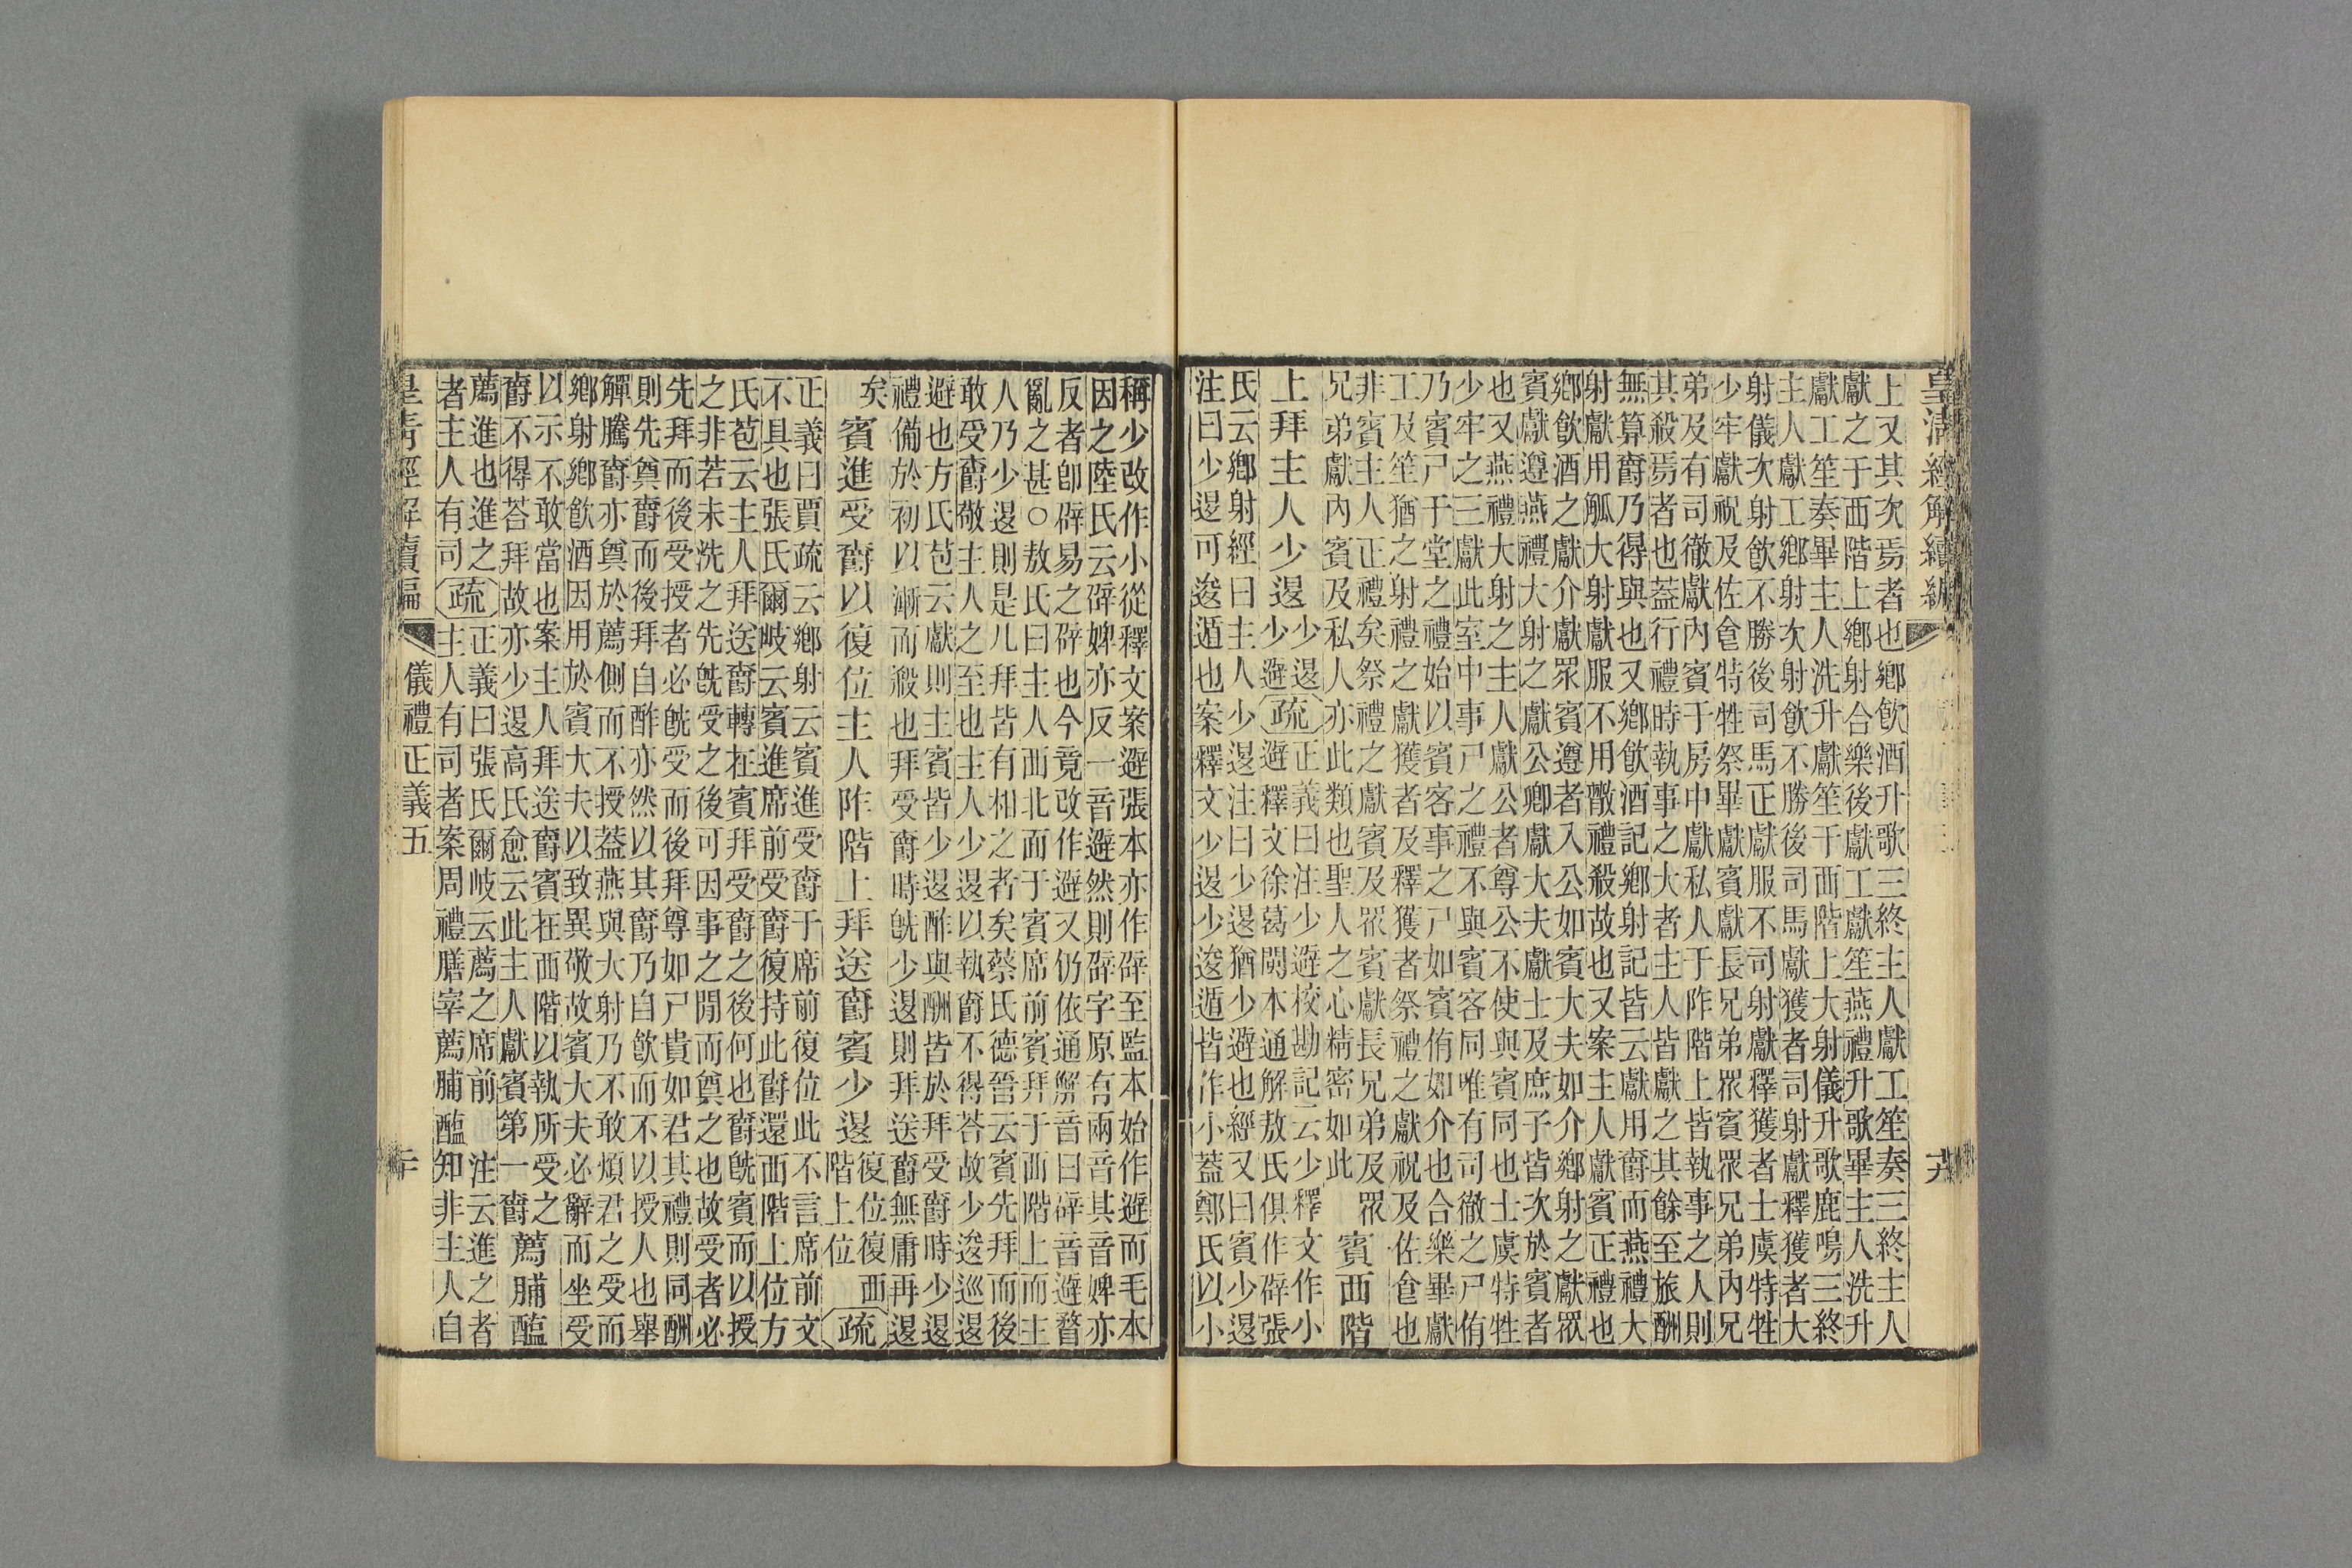 皇清經解續編
上又其次焉者也鄉飲酒升歌三終主人獻工笙奏三終主人
獻之于西階上鄉射合樂後獻工獻笙燕禮升歌畢主人洗升
獻工笙奏畢主人洗升獻笙于西階上大射儀升歌鹿鳴三終
主人獻工鄉射次射飲不勝後司馬獻獲者司射獻釋獲者大
射儀次射飲不勝後司馬正獻服不司射獻釋獲者士虞特牲
少牢獻祝及佐食特牲祭畢獻賓獻長兄弟眾賓眾兄弟內兄
弟及有司徹獻內賓于房中獻私人于阼階上皆執事之人則
其殺焉者也蓋行禮時執事之大者主人皆獻之其餘至旅酬
無算爵乃得與也又鄉飲酒記鄉射記皆云獻用爵而燕禮大
射獻用觚大射獻服不用散禮殺故也又案主人獻賓正禮也
鄉飲酒之獻介獻眾賓遵者入公如賓大夫如介鄉射之獻眾
賓獻遵燕禮大射之獻公卿獻大夫獻士及庶子皆次於賓者
也又燕禮大射之主人獻公者尊公不使與賓同也士虞特牲
少牢之三獻此室中事尸之禮不與賓客同唯有司徹之尸侑
乃賓尸于堂之禮始以賓客事之尸如賓侑如介也合樂畢獻
工及笙猶之射禮之獻獲者及釋獲者祭禮之獻祝及佐食也
非賓主人正禮矣祭禮之獻賓及眾賓獻長兄弟及眾
兄弟獻內賓及私人亦此類也聖人之心精密如此
賓西階
上拜主人少退
少退
少避
疏
正義曰注少避校勘記云少釋文作小
避釋文徐葛閩本通解敖氏俱作辟張
氏云鄉射經曰主人少退注曰少退猶少避也經又曰賓少退
注曰少退可逡遁也案釋文少退少逡遁皆作小蓋鄭氏以小
十九
稱少改作小從釋文案避張本亦作辟至監本始作避而毛本
因之陸氏云辟婢亦反一音避然則辟字原有兩音其音婢亦
反者卽辟易之辟也今竟改作避又仍依通解音曰辟音避瞀
亂之甚○敖氏曰主人西北面于賓席前賓拜于西階上而主
人乃少退則是凡拜皆有相之者矣蔡氏德晉云賓先拜而後
敢受爵敬主人之至也主人少退以執爵不得荅故少逡巡退
避也方氏苞云獻則主賓皆少退酢與酬皆於拜受爵時少退
禮備於初以漸而殺也拜受爵時旣少退則拜送爵無庸再退
矣
賓進受爵以復位主人阼階上拜送爵賓少退
復位復西
階上位
疏
正義曰賈疏云鄉射云賓進受爵于席前復位此不言席前文
不具也張氏爾岐云賓進席前受爵復持此爵還西階上位方
氏苞云主人拜送爵轉在賓拜受爵之後何也爵旣賓而以授
之非若未洗之先旣受之後可因事之閒而奠之也故受者必
先拜而後受授者必旣受而後拜尊如尸貴如君其禮則同酬
則先奠爵而後拜自酢亦然以其爵乃自飲而不以授人也舉
觶騰爵亦奠於薦側而不授蓋燕與大射乃不敢煩君之受而
鄉射鄉飲酒因用於賓大夫以致異敬故賓大夫必辭而坐受
以示不敢當也案主人拜送爵賓在西階以執所受之
爵不得荅拜故亦少退高氏愈云此主人獻賓第一爵
薦脯醢
薦進也進之
者主人有司
疏
正義曰張氏爾岐云薦之席前 注云進之者
主人有司者案周禮膳宰薦脯醢知非主人自
皇清經解續編 儀禮正義五 二十